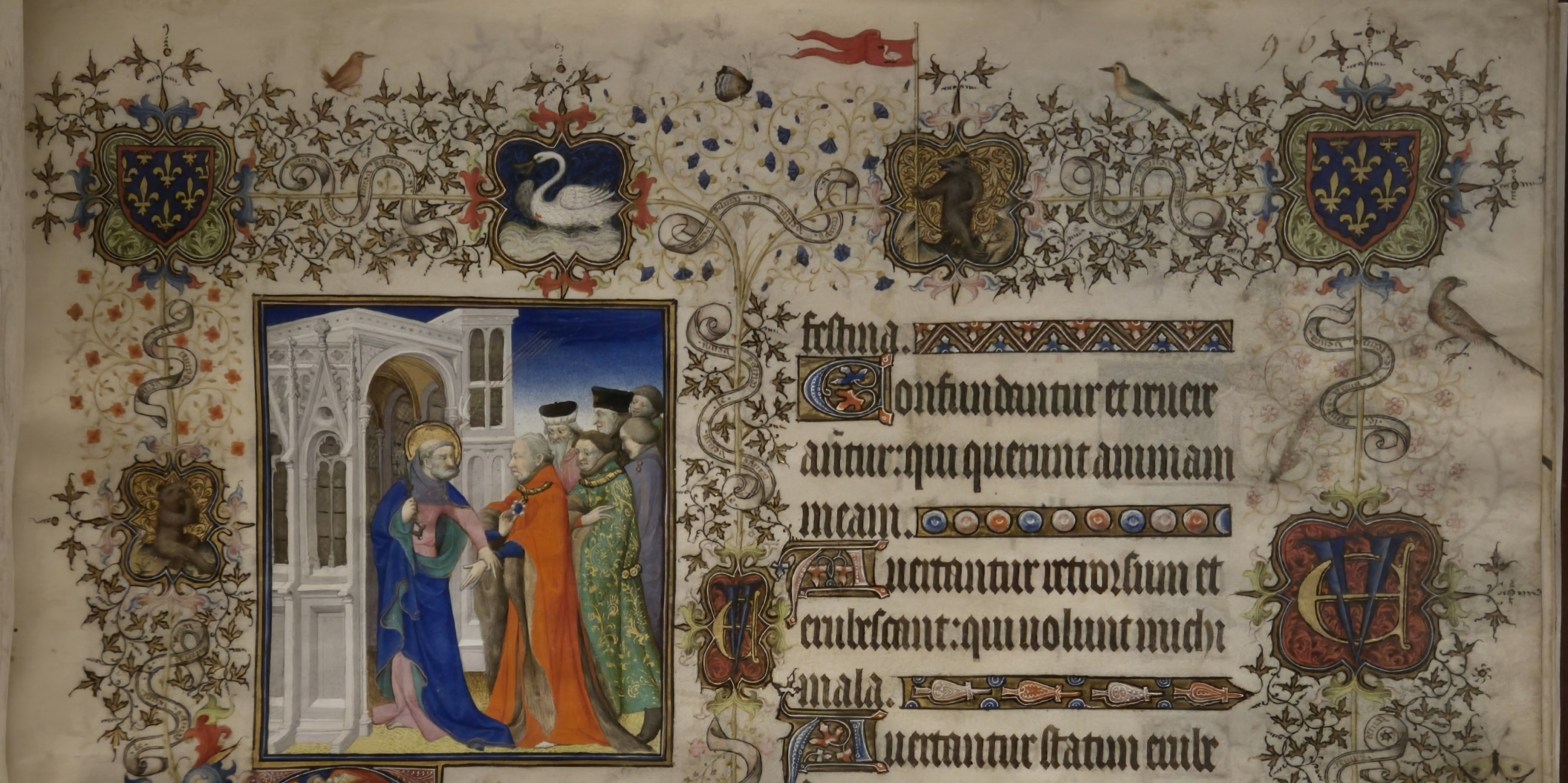 96
festina.
Confundantur et reuere
añtur: qui querunt animam
meam.
Auertantur retrorsum et
erubescant: qui uolunt michi
mala.
Auertantur statim erube